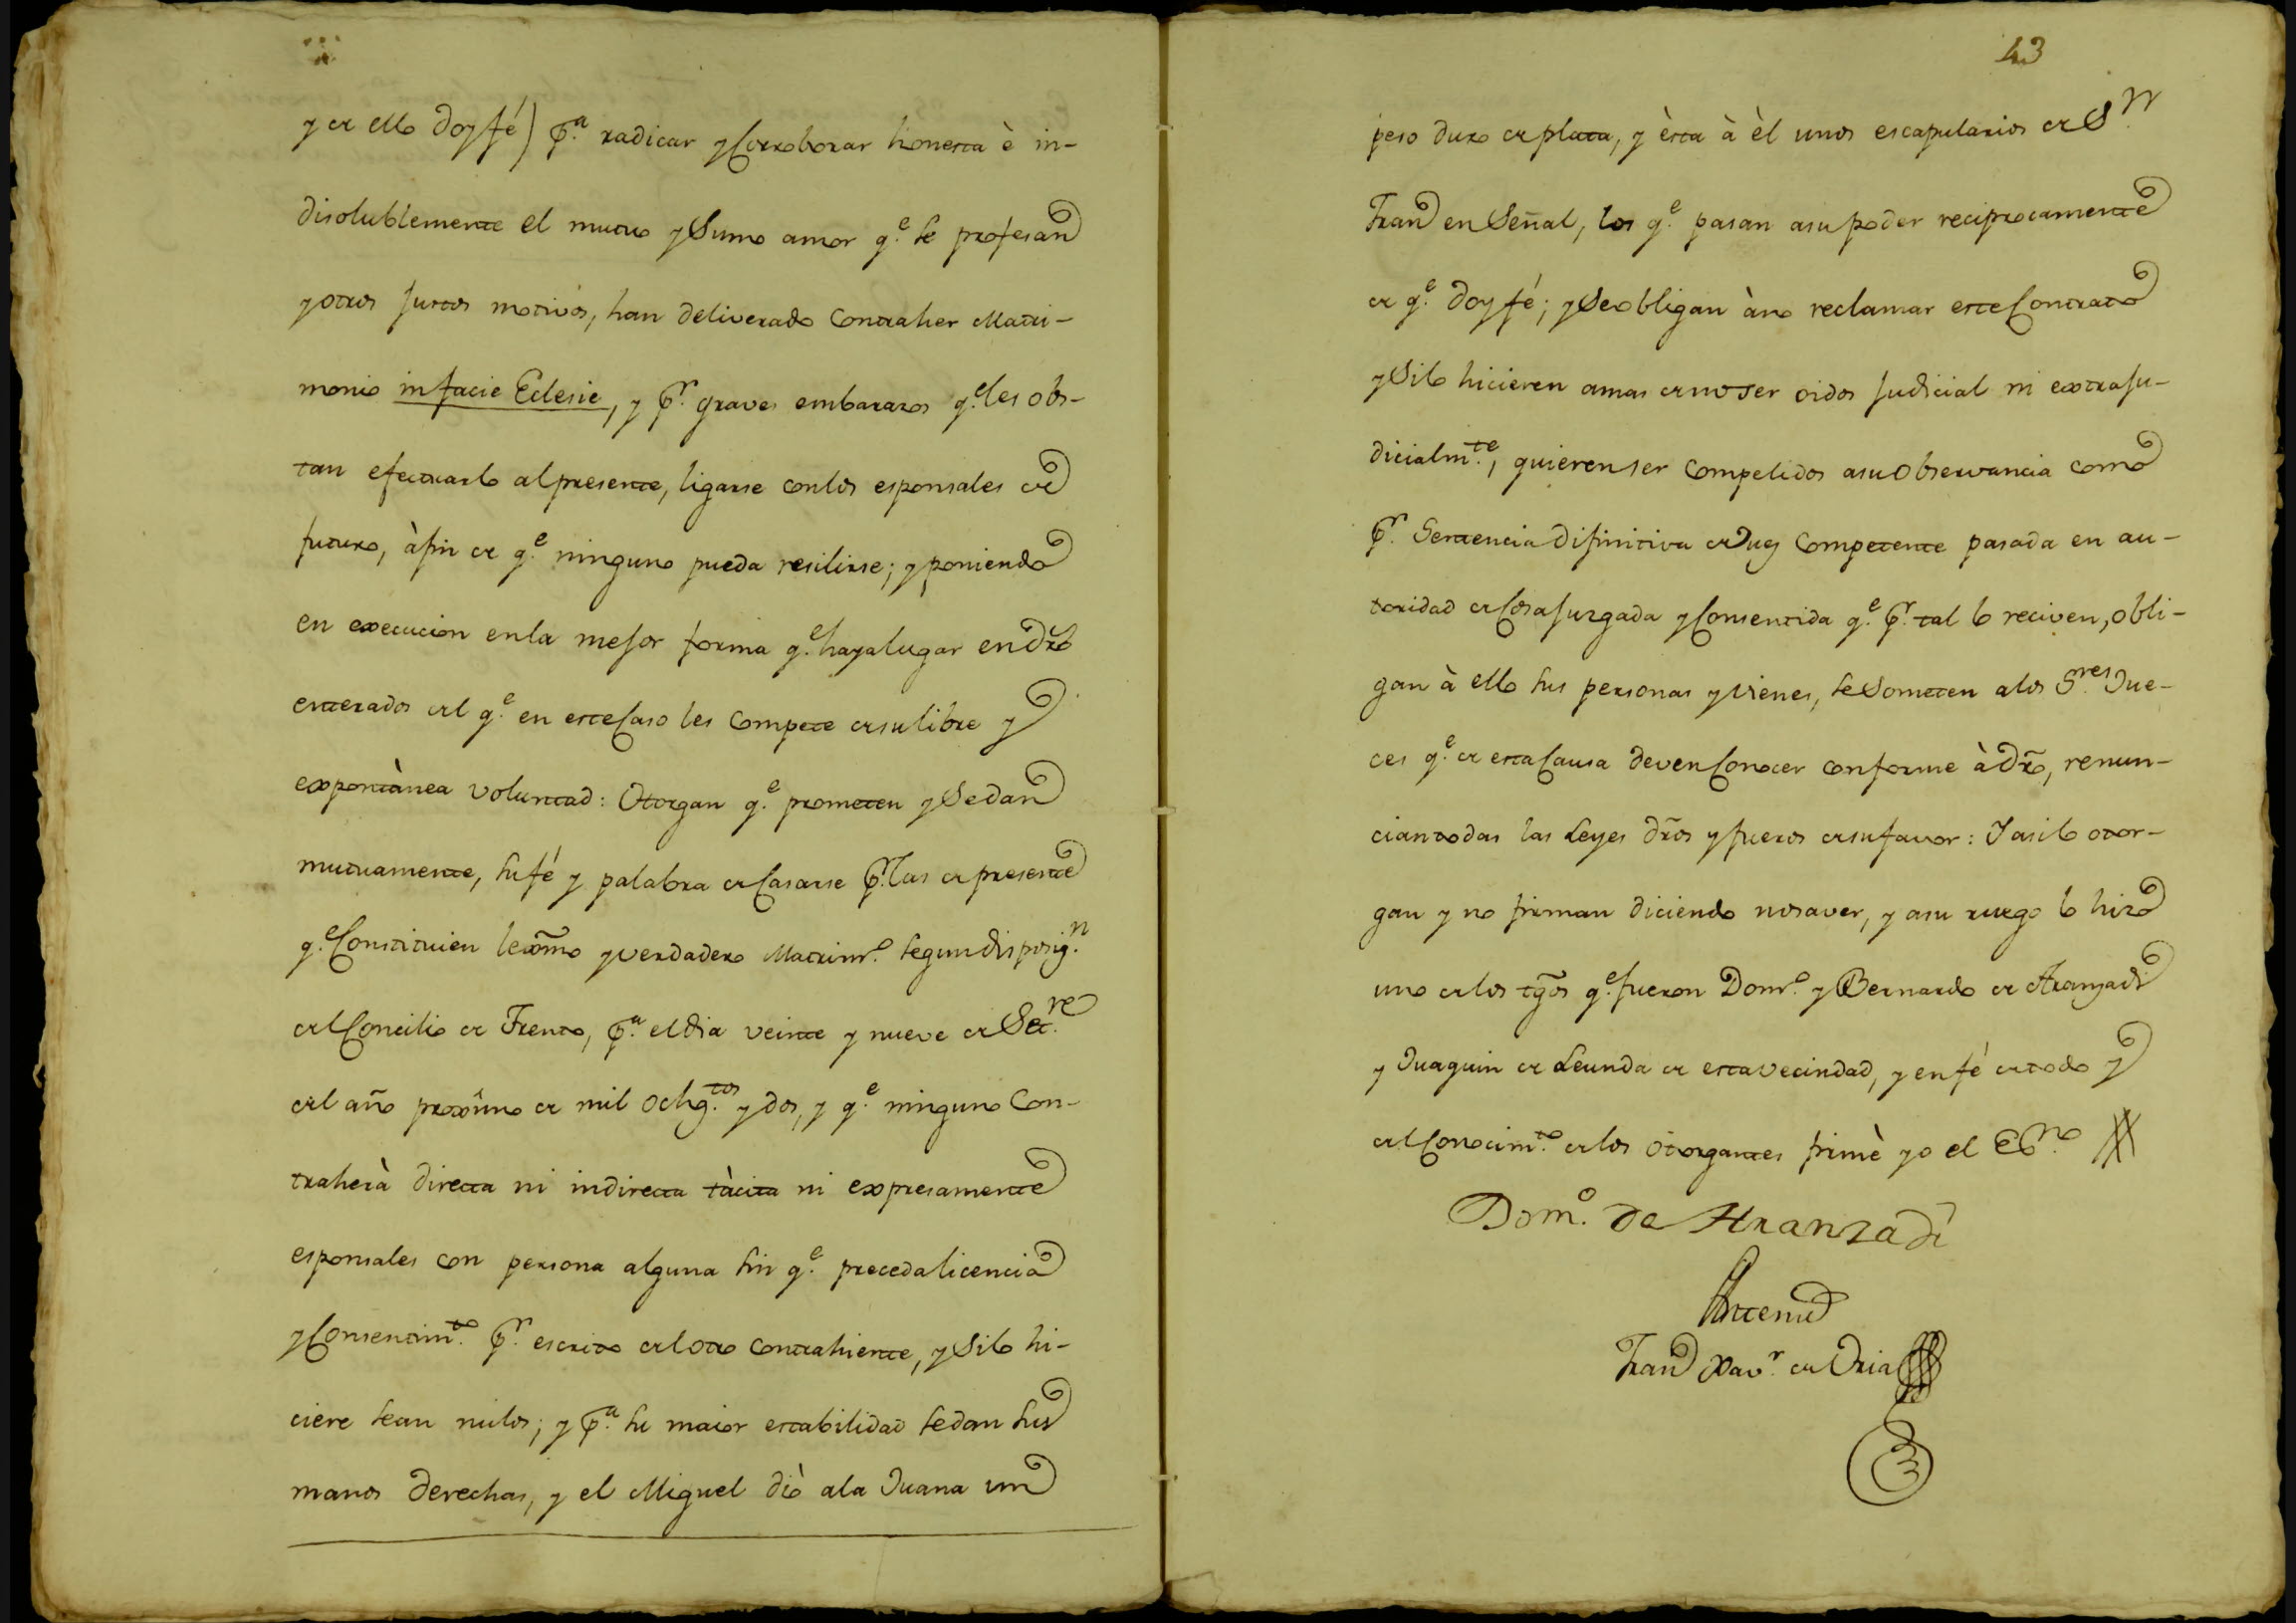 y de ello doy fé) p.ª radicar y Corroborar honesta è in-
disolublemente el mutuo y Sumo amor q.e se profesan
y otros justos motivos, han deliverado Contraher Matri-
monio in facie Eclesie, y p.r graves embarazos q.e les obs-
tan efectuarlo al presente, ligarse con los esponsales de
futuro, à fin de q.e ninguno pueda resilirse; y poniendo
en execucion en la mejor forma q.e haya lugar en dro
enterados del q.e en este Caso les Compete de su libre y
expontànea voluntad: Otorgan q.e prometen y Se dan
mutuamente, su fé y palabra de Casarse p.r las de presente
q.e Constituien lexmo y verdadero Matrim.o segun disposiz.n
del Concilio de Trento, p.ª el dia veinte y nueve de Set.re
del año proximo de mil ochoz.tos y dos, y q.e ninguno Con-
traherà directa ni indirecta tàcita ni expresamente
esponsales con persona alguna sin q.e preceda licencia
y Consentim.to p.r escrito del otro Contrahiente, y Si lo hi-
ciere sean nulos; y p.ª su maior estabilidad se dan sus
manos derechas, y el Miguel diò a la Juana un
43
peso duro de plata, y èsta à èl unos escapularios de S.n
Fran.co en Señal, los q.e pasan a su poder reciprocamente
de q.e doy fé; y Se obligan à no reclamar este Contrato
y Si lo hicieren a mas de no ser oidos Judicial ni extraju-
dicialm.te, quieren ser Compelidos a su Observancia como
p.r Sentencia difinitiva de Juez Competente pasada en au-
toridad de Cosa juzgada y Consentida q.e p.r tal lo reciven, obli-
gan à ello sus personas y vienes, se Someten a los S.res Jue-
ces q.e de esta Causa deven Conocer conforme à dro, renun-
cian todas las Leyes dros y fueros de su favor: Y asi lo otor-
gan y no firman diciendo no saver, y a su ruego lo hizo
uno de los tgos q.e fueron Dom.o y Bernardo de Aranzadi
y Juaquin de Leunda de esta vecindad, y en fé de todo y
del Conocim.to de los otorgantes firmè yo el Es.no
Dom.o de Aranzadi
Ante mi
Fran.co Xav.r de Oria